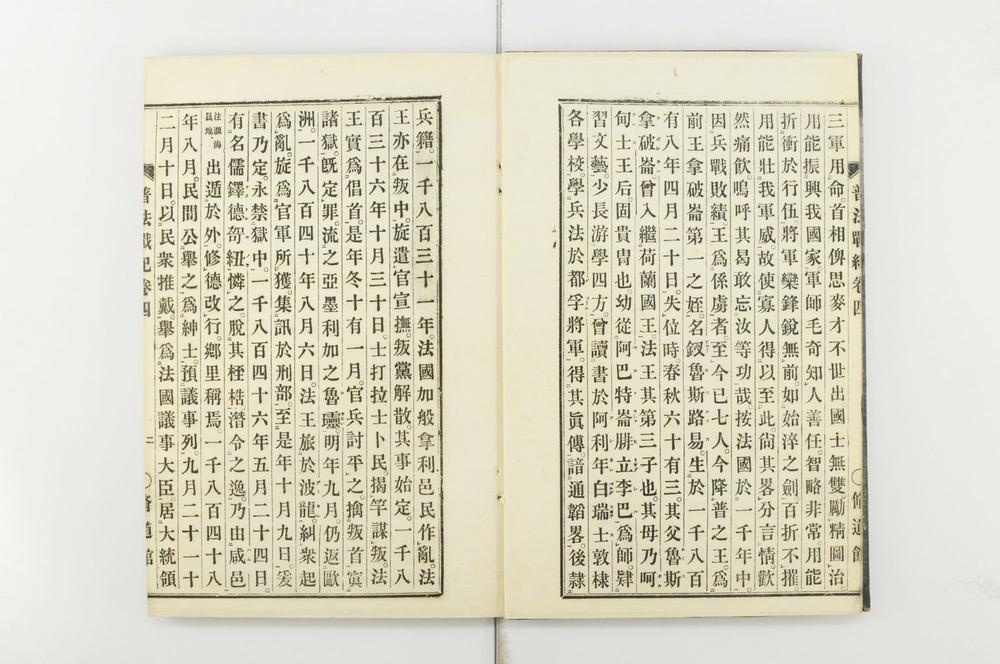 三軍用命。首相俾思麥才不世出國士無雙勵精圖治。
用能振興我國家軍師毛奇知人善任。智略非常用能
折衝於行伍。將軍欒鋒銳無前如始淬之劍百折不摧
用能壯我軍威。故使寡人得以至此。尙其畧分言情歡
然痛飲。嗚呼其曷敢忘汝等功哉按法國於一千年中。
因兵戰敗績。王爲係虜者。至今已七人。今降普之王。爲
前王拿破崙第一之姪。名錣魯斯路易。生於一千八百
有八年四月二十日。失位時。春秋六十有三。其父魯斯
拿破崙。曾入繼荷蘭國王。法王其第三子也。其母乃呵
旬士王后。固貴胄也。幼從阿巴特崙腓立李巴爲師。肄
習文藝。少長游學四方。曾讀書於阿利年白瑞士敦棣
各學校。學兵法於都孚將軍。得其眞傳。諳通韜畧後隸
普法戰紀卷四
〇脩道館
兵籍。一千八百三十一年。法國加般拿利邑民作亂。法
王亦在叛中。旋遣官宣撫。叛黨解散。其事始定。一千八
百三十六年十月三十日。士打拉士卜民。揭竿謀叛。法
王實爲倡首。是年冬十有一月。官兵討平之。擒叛首寘
諸獄。旣定罪。流之亞墨利加之魯。明年九月。仍返歐
洲。一千八百四十年八月六日。法王旅於波龍。糾衆起
爲亂。旋爲官軍所獲。集訊於刑部。至是年十月九日。爰
書乃定。永禁獄中。一千八百四十六年五月二十四日。
有名儒鐸德哿紐憐之。脫其桎梏潛令之逸。乃由咸邑
法瀕海
縣地、
出遁於外。修德改行。鄉里稱焉。一千八百四十八
年八月。民間公舉之爲紳士。預議事列。九月二十一十
二月十日。以民衆推戴。舉爲法國議事大臣。居大統領
普法戰紀卷四
二
〇脩道館